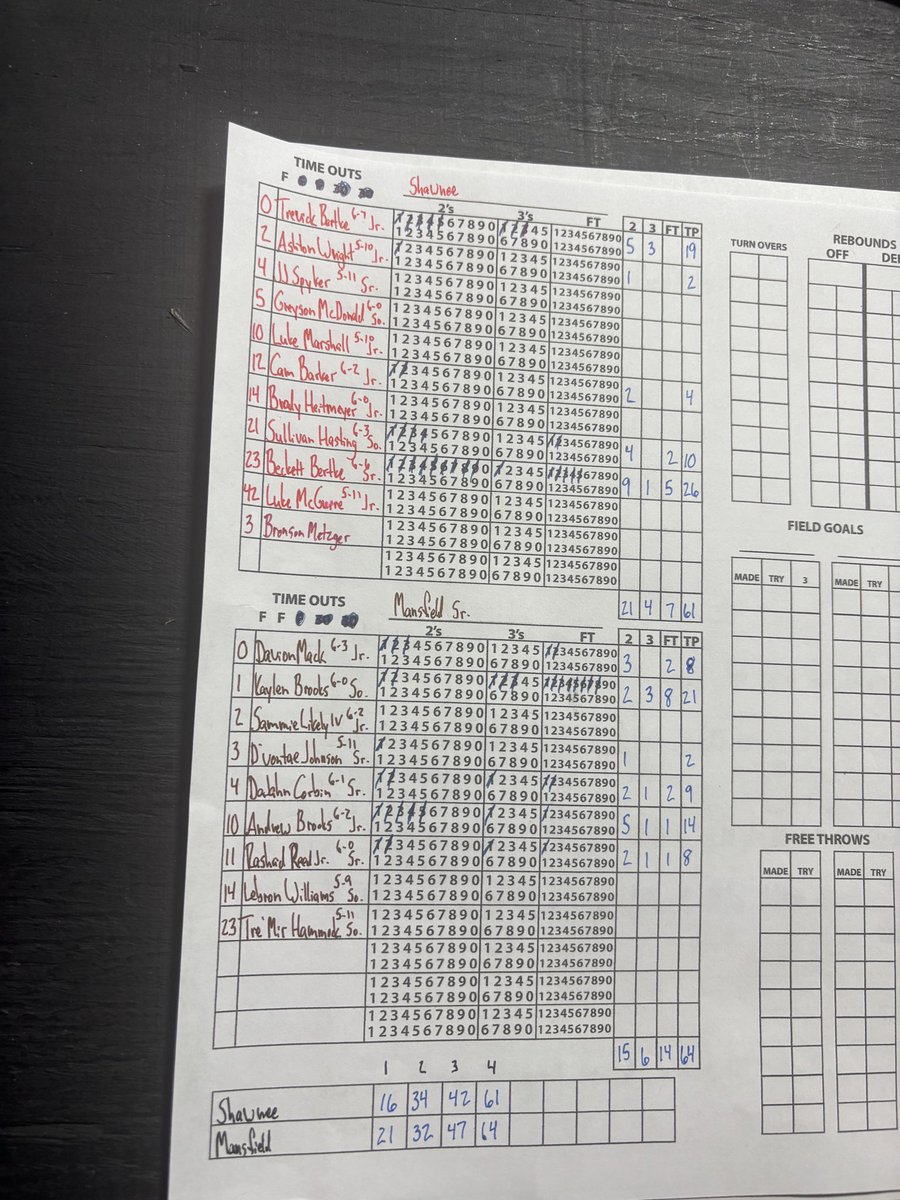 TIME OUTS
F
Shawnee
2's 3's FT 2 3 FT TP
0 Trevick Bertke 6-7 Jr. 1234567890 12345 1234567890 5 3 19
1234567890 67890 1234567890
2 Ashton Wright 5-10 Jr. 1234567890 12345 1234567890 1 2
1234567890 67890 1234567890
4 JJ Spyker 5-11 Sr. 1234567890 12345 1234567890
1234567890 67890 1234567890
5 Greyson McDonald 6-0 So. 1234567890 12345 1234567890
1234567890 67890 1234567890
10 Luke Marshall 5-10 Jr. 1234567890 12345 1234567890
1234567890 67890 1234567890
12 Cam Barker 6-2 Jr. 1234567890 12345 1234567890 2 4
1234567890 67890 1234567890
14 Brady Heitmeyer 6-0 Jr. 1234567890 12345 1234567890
1234567890 67890 1234567890
21 Sullivan Hasting 6-3 So. 1234567890 12345 1234567890 4 2 10
1234567890 67890 1234567890
23 Beckett Bertke 6-6 Sr. 1234567890 12345 1234567890 9 1 5 26
1234567890 67890 1234567890
42 Luke 5-11 Jr. 1234567890 12345 1234567890
1234567890 67890 1234567890
3 Bronson Metzger 1234567890 12345 1234567890
1234567890 67890 1234567890
1234567890 12345 1234567890
1234567890 67890 1234567890
21 4 7 61
TIME OUTS
F F
Mansfield Sr.
2's 3's FT 2 3 FT TP
0 Davion Mack 6-3 Jr. 1234567890 12345 1234567890 3 2 8
1234567890 67890 1234567890
1 Kaylen Brooks 6-0 So. 1234567890 12345 1234567890 2 3 8 21
1234567890 67890 1234567890
2 Sammie Likely IV 6-2 Jr. 1234567890 12345 1234567890
1234567890 67890 1234567890
3 D'vontae Johnson 5-11 Sr. 1234567890 12345 1234567890 1 2
1234567890 67890 1234567890
4 DaJahn Corbin 6-1 Sr. 1234567890 12345 1234567890 2 1 2 9
1234567890 67890 1234567890
10 Andrew Brooks 6-2 Jr. 1234567890 12345 1234567890 5 1 1 14
1234567890 67890 1234567890
11 Rashad Reed Jr. 6-0 Sr. 1234567890 12345 1234567890 2 1 1 8
1234567890 67890 1234567890
14 Lebron Williams 5-9 So. 1234567890 12345 1234567890
1234567890 67890 1234567890
23 Tre'Mir Hammock 5-11 So. 1234567890 12345 1234567890
1234567890 67890 1234567890
1234567890 12345 1234567890
1234567890 67890 1234567890
1234567890 12345 1234567890
1234567890 67890 1234567890
1234567890 12345 1234567890
1234567890 67890 1234567890
15 6 14 64
1 2 3 4
Shawnee 16 34 42 61
Mansfield 21 32 47 64
TURN OVERS
REBOUNDS
OFF
FIELD GOALS
MADE TRY 3 MADE TRY
FREE THROWS
MADE TRY MADE TRY